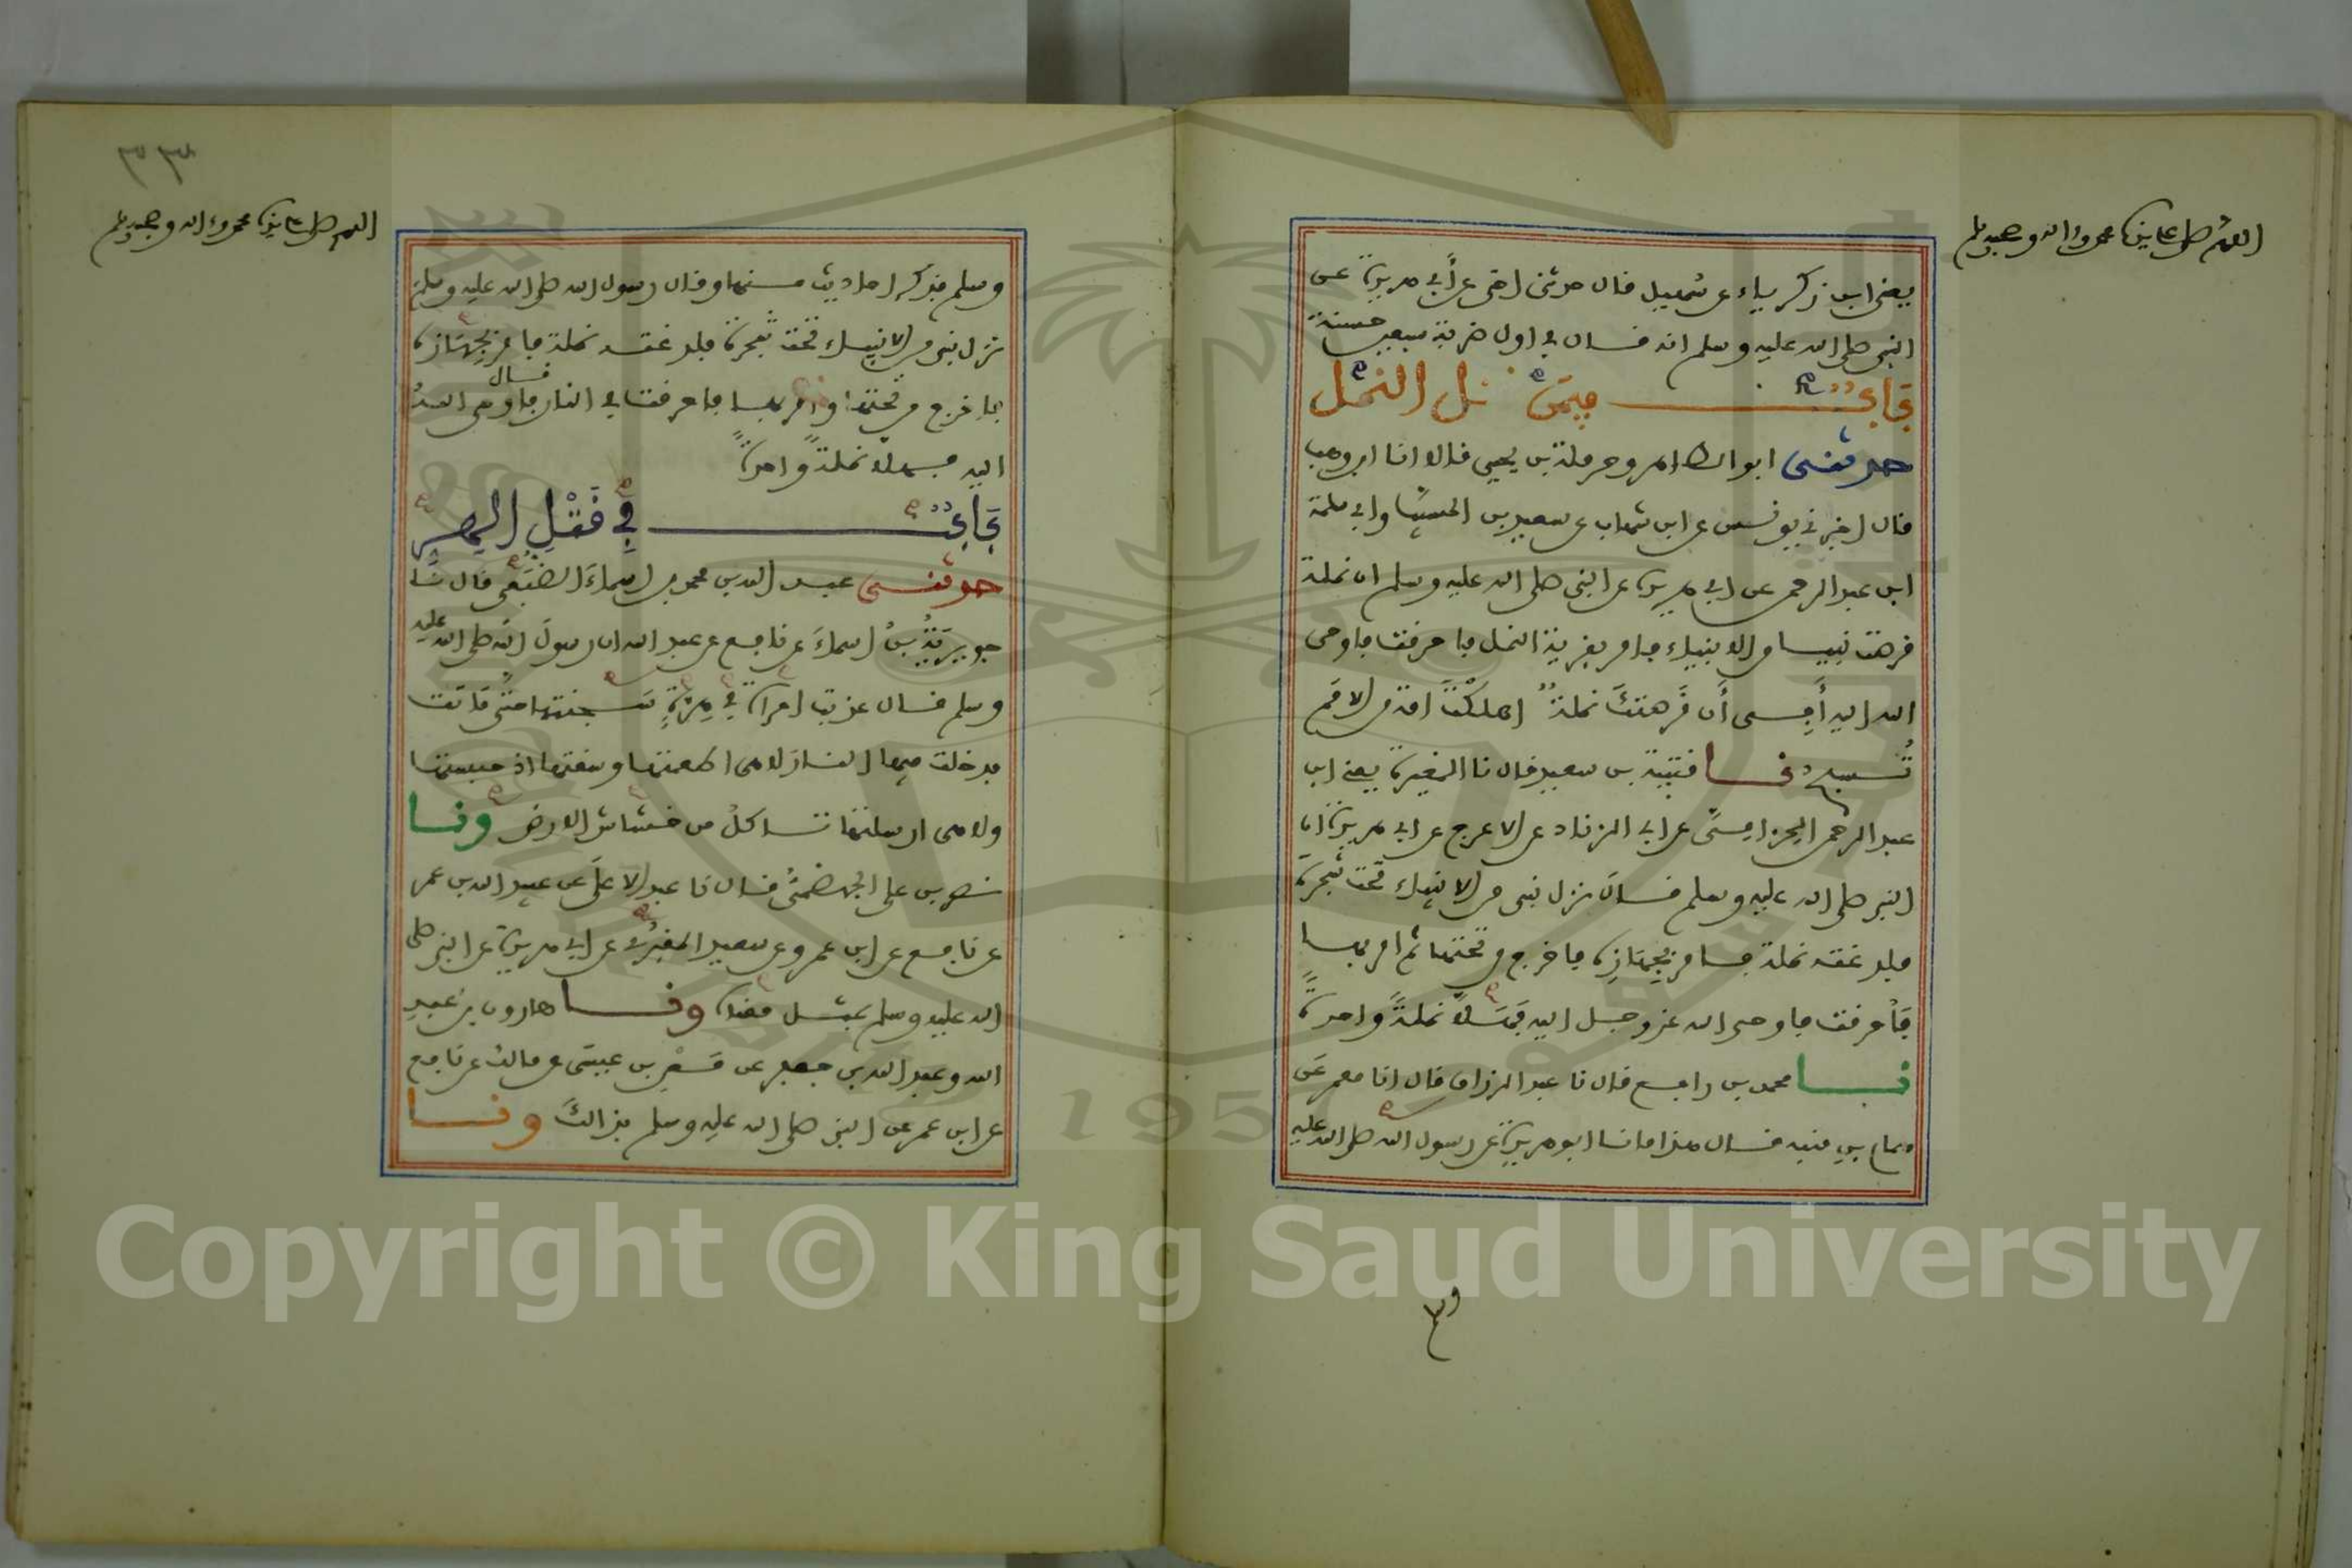 اللهم صل على سيدنا محمد وءاله وصحبه وسلم
يعنى ابن زكرياء عن سهيل قال حدثتنى اختى عن أبى هريرة عن
النبى صلى الله عليه وسلم انه قال في اول ضربة سبعين حسنة
باب فيمن قتل النمل
حدثنى ابو الطاهر وحرملة بن يحيى قالا انا ابن وهب
قال اخبرنى يونس عن ابن شهاب عن سعيد بن المسيب وابى سلمة
ابن عبد الرحمن عن ابى هريرة عن النبى صلى الله عليه وسلم ان نملة
قرصت نبيا من الانبياء فامر بقرية النمل فاحرقت فاوحى
الله اليه أفى أن قرصتك نملة اهلكت امة من الامم
تسبح نا قتيبة بن سعيد قال نا المغيرة يعنى ابن
عبد الرحمن الحزامى عن ابى الزناد عن الاعرج عن ابى هريرة ان
النبى صلى الله عليه وسلم قال نزل نبى من الانبياء تحت شجرة
فلدغته نملة فامر بجهازه فاخرج من تحتها ثم امر بها
فأحرقت فاوحى الله عز وجل اليه فهلا نملة واحدة
نا محمد بن رافع قال نا عبد الرزاق قال انا معمر عن
همام بن منبه قال هذا ما نا ابو هريرة عن رسول الله صلى الله عليه
٣٣
اللهم صل على سيدنا محمد وءاله وصحبه وسلم
وسلم فذكر احاديث منها وقال رسول الله صلى الله عليه وسلم
نزل نبى من الانبياء تحت شجرة فلدغته نملة فامر بجهازه
فاخرج من تحتها وامر بها فاحرقت في النار قال فاوحى الله
اليه فهلا نملة واحدة
باب في قتل الهر
حدثنى عبد الله بن محمد بن اسماء الضبعى قال نا
جويرية بن اسماء عن نافع عن عبد الله ان رسول الله صلى الله عليه
وسلم قال عذبت امراة في هرة سجنتها حتى ماتت
فدخلت فيها النار لا هى اطعمتها وسقتها اذ حبستها
ولا هى ارسلتها تاكل من خشاش الارض ونا
نصر بن على الجهضمى قال نا عبد الاعلى عن عبيد الله بن عمر
عن نافع عن ابن عمر وعن سعيد المقبرى عن ابى هريرة عن النبى صلى
الله عليه وسلم بمثل معناه ونا هارون بن عبد
الله وعبد الله بن جعفر عن معن بن عيسى عن مالك عن نافع
عن ابن عمر عن النبى صلى الله عليه وسلم بذالك ونا
Copyright © King Saud University
1957